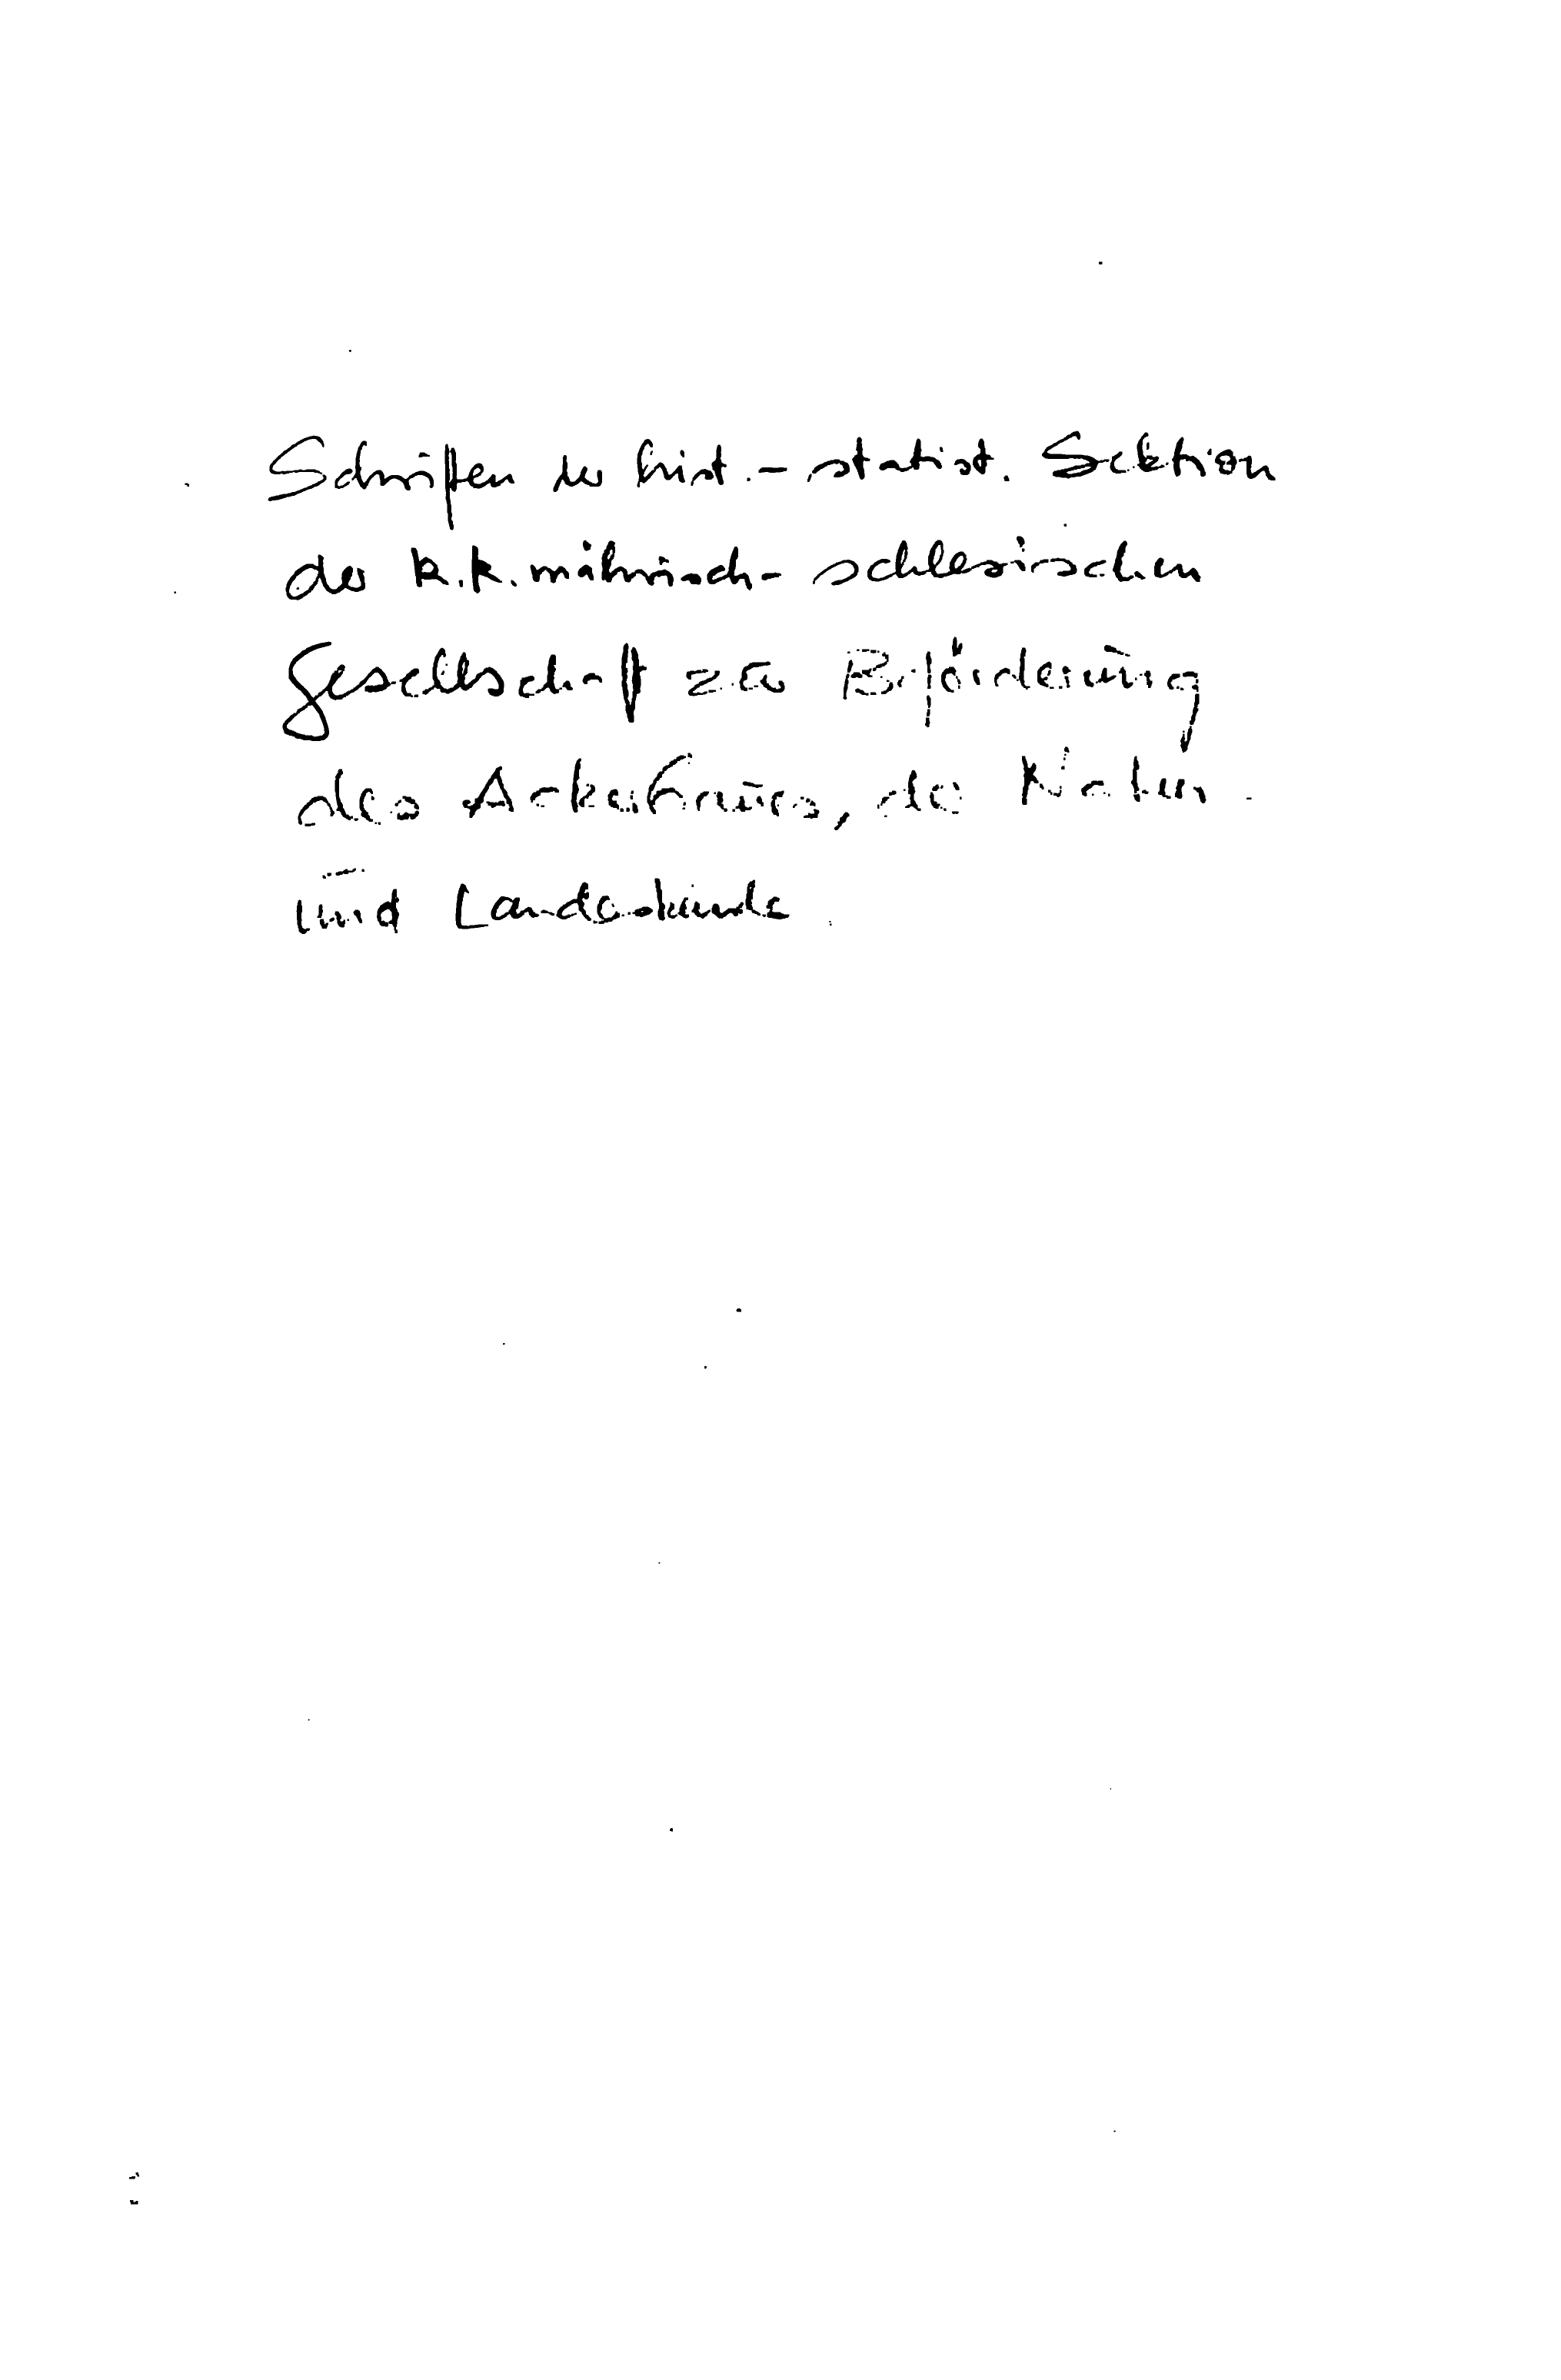 Schriften der hist.-statist. Sektion
der k.k. mährisch-schlesischen
Gesellschaft zur Beförderung
des Ackerbaues, der Natur-
und Landeskunde